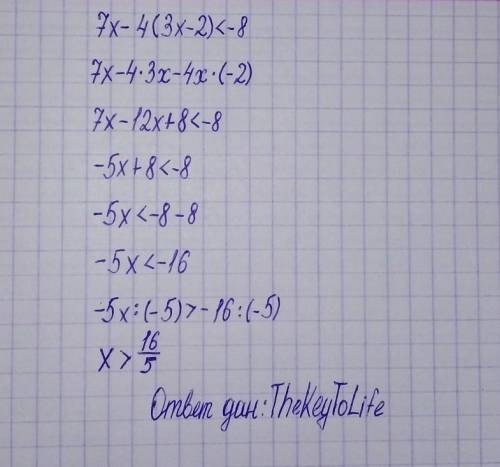 7x-4(3x-2)<-8
7x-4·3x-4x·(-2)
7x-12x+8<-8
-5x+8<-8
-5x<-8-8
-5x<-16
-5x:(-5)>-16:(-5)
x>16/5
Ответ дан: TheKeyToLife